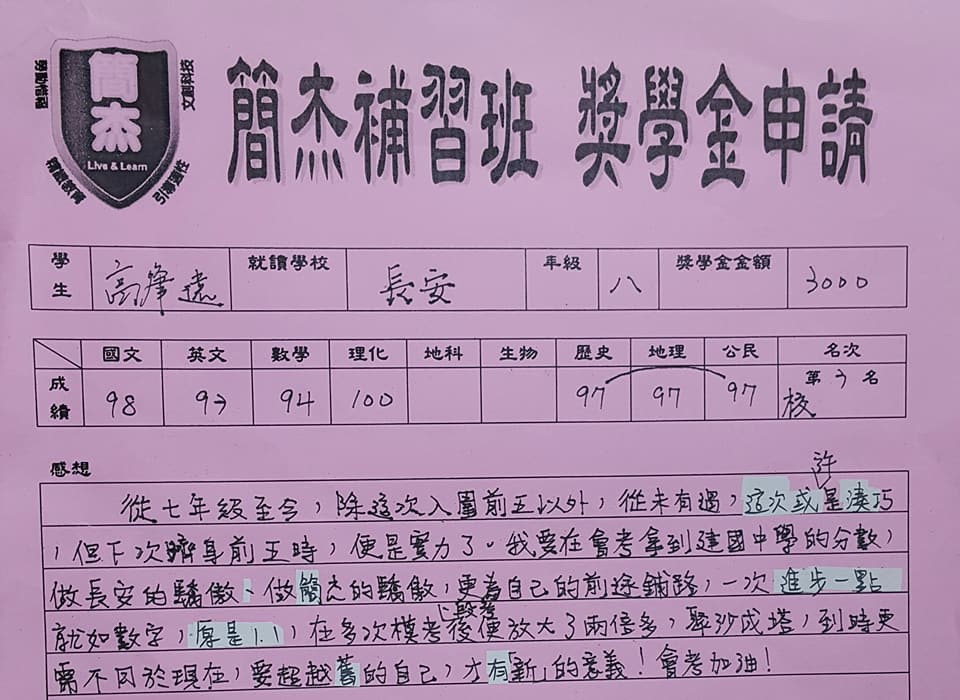 簡杰
Live & Learn
文創科技
精緻教育
引導理性
簡杰補習班 獎學金申請
學生 高肇遠 就讀學校 長安 年級 八 獎學金金額 3000
國文 英文 數學 理化 地科 生物 歷史 地理 公民 名次
成績 98 97 94 100 97 97 97 校 第 3 名
感想
從七年級至今,除這次入圍前五以外,從未有過,這次或許是湊巧
,但下次躋身前五時,便是實力了。我要在會考拿到建國中學的分數,
做長安的驕傲、做簡杰的驕傲,更為自己的前途鋪路,一次進步一點
就如數字,原是1.1,在多次模考、段考後便放大了兩倍多,聚沙成塔,到時更
需不同於現在,要超越舊的自己,才有「新」的意義!會考加油!